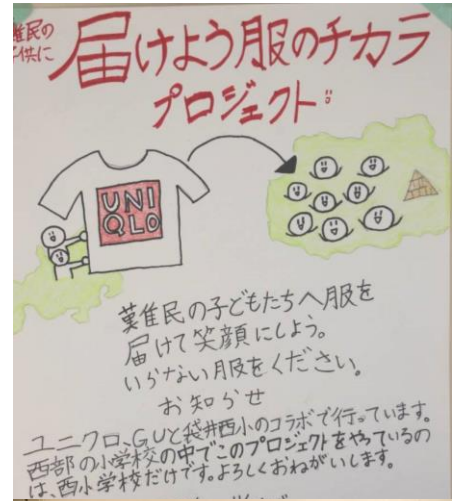 難民の
子供に
届けよう服のチカラ
プロジェクト
UNI
QLO
難民の子どもたちへ服を
届けて笑顔にしよう。
いらない服をください。
お知らせ
ユニクロ、GUと袋井西小のコラボで行っています。
西部の小学校の中でこのプロジェクトをやっているの
は、西小学校だけです。よろしくおねがいします。